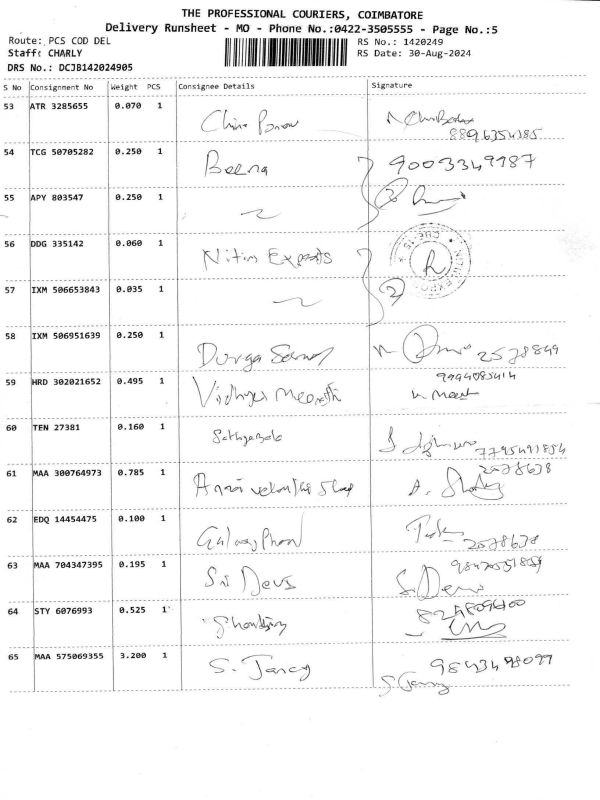 THE PROFESSIONAL COURIERS, COIMBATORE
Delivery Runsheet - MO - Phone No.:0422-3505555 - Page No.:5
Route: PCS COD DEL RS No.: 1420249
Staff: CHARLY RS Date: 30-Aug-2024
DRS No.: DCJB142024905
S No Consignment No Weight PCS Consignee Details Signature
53 ATR 3285655 0.070 1
8896354385
54 TCG 50705282 0.250 1 Beena 9003349987
55 APY 803547 0.250 1
56 DDG 335142 0.060 1 Nitin Exports
57 IXM 506653843 0.035 1 2
58 IXM 506951639 0.250 1 Durga 2578849
59 HRD 302021652 0.495 1 Vidhya Meenakshi 9994085414
60 TEN 27381 0.160 1 Sathyabala 7795491854
61 MAA 300764973 0.785 1 2578638
62 EDQ 14454475 0.100 1 Galaxy Phone 2578638
63 MAA 704347395 0.195 1 Sri Devi S. Devi
64 STY 6076993 0.525 1
65 MAA 575069355 3.200 1 S. Jancy 9843498099
S Jancy